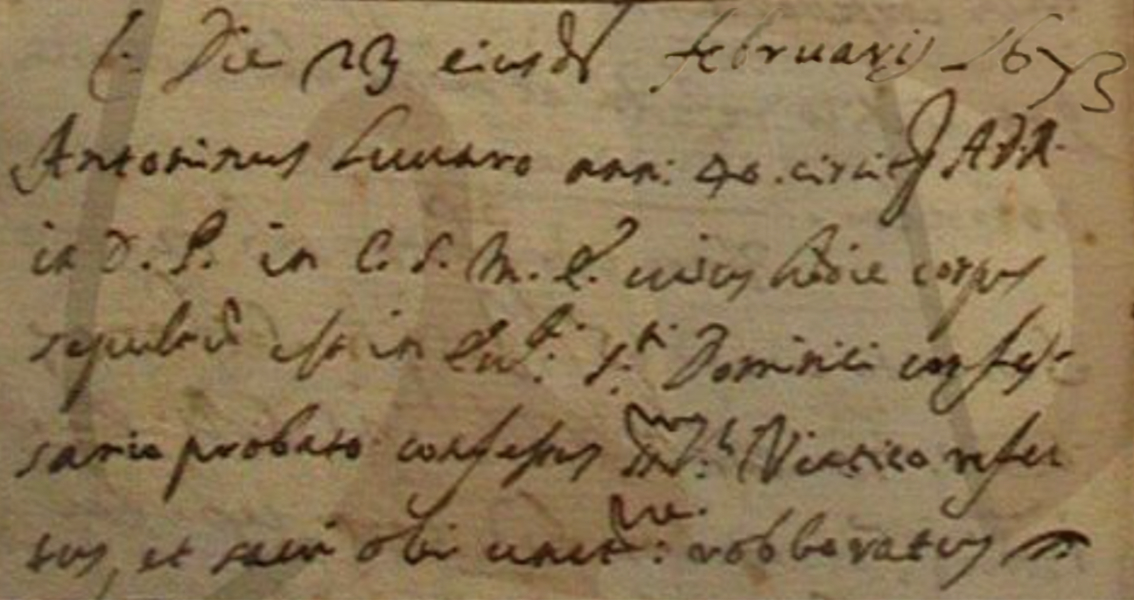 Die 23 eiusd februarij 1673
Antoninus Luvaro ann: 40. circit. A.D.R.
in D. P. in C. S. M. E. cuius hodie corpus
sepultũ est in Eccl. S.ti Dominici confes-
sario probato confessus Viatico refec
tus, et sacri olei unct: robboratus